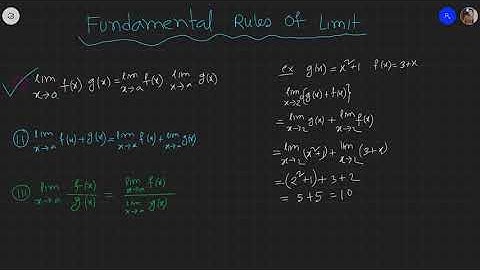 Fundamental Rules Of Limit
lim x→a f(x) g(x) = lim x→a f(x) . lim x→a g(x)
(ii) lim x→a f(x) + g(x) = lim x→a f(x) + lim x→a g(x)
(iii) lim x→a f(x)/g(x) = lim x→a f(x) / lim x→a g(x)
ex g(x) = x²+1 f(x) = 3+x
lim x→2 {g(x) + f(x)}
= lim x→2 g(x) + lim x→2 f(x)
= lim x→2 (x²+1) + lim x→2 (3+x)
= (2²+1) + 3 + 2
= 5+5 = 10